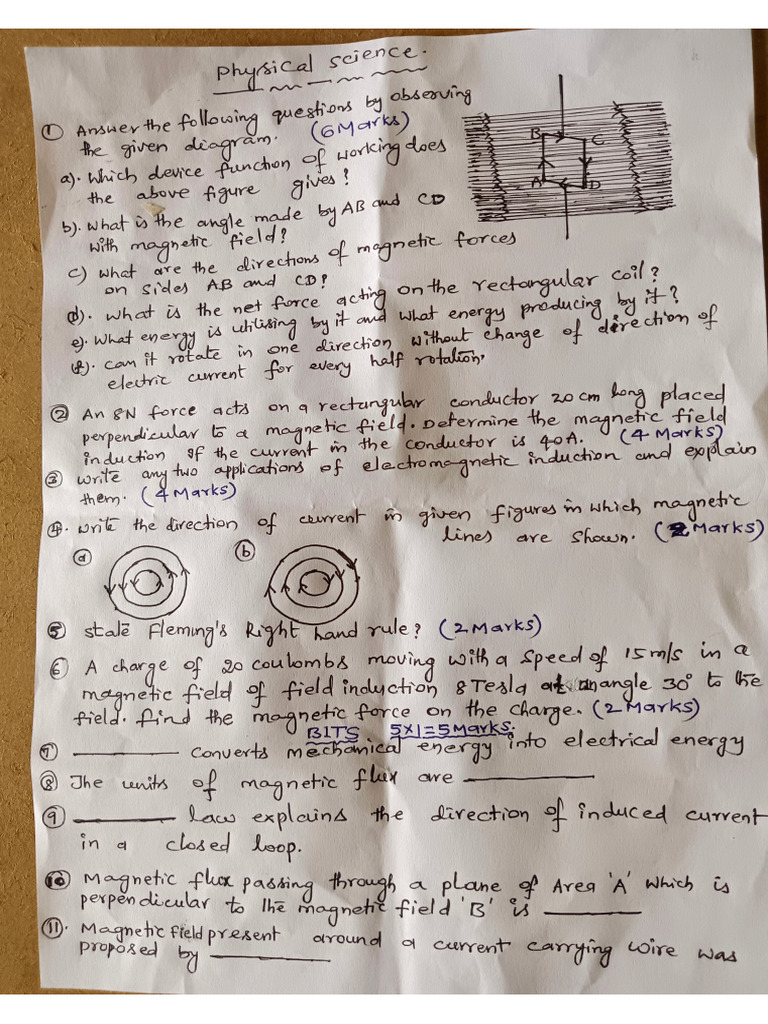 Physical Science.
① Answer the following questions by observing
the given diagram. (6 Marks)
a). Which device function of working does
the above figure gives?
b). What is the angle made by AB and CD
with magnetic field?
c) What are the directions of magnetic forces
on sides AB and CD?
d). What is the net force acting on the rectangular coil?
e). What energy is utilising by it and what energy producing by it?
f). Can it rotate in one direction without change of direction of
electric current for every half rotation.
B C
A D
② An 8N force acts on a rectangular conductor 20 cm long placed
perpendicular to a magnetic field. Determine the magnetic field
induction If the current in the conductor is 40A. (4 Marks)
③ Write any two applications of electromagnetic induction and explain
them. (4 Marks)
④. Write the direction of current in given figures in which magnetic
lines are shown. (2 Marks)
ⓐ ⓑ
⑤ State Fleming's Right hand rule? (2 Marks)
⑥ A charge of 20 coulombs moving with a speed of 15 m/s in a
magnetic field of field induction 8 Tesla at an angle 30° to the
field. Find the magnetic force on the charge. (2 Marks)
BITS 5×1=5 Marks.
⑦ ________ converts mechanical energy into electrical energy
⑧ The units of magnetic flux are ________
⑨ ________ law explains the direction of induced current
in a closed loop.
⑩ Magnetic flux passing through a plane of Area 'A' which is
perpendicular to the magnetic field 'B' is ________
⑪. Magnetic field present around a current carrying wire was
proposed by ________